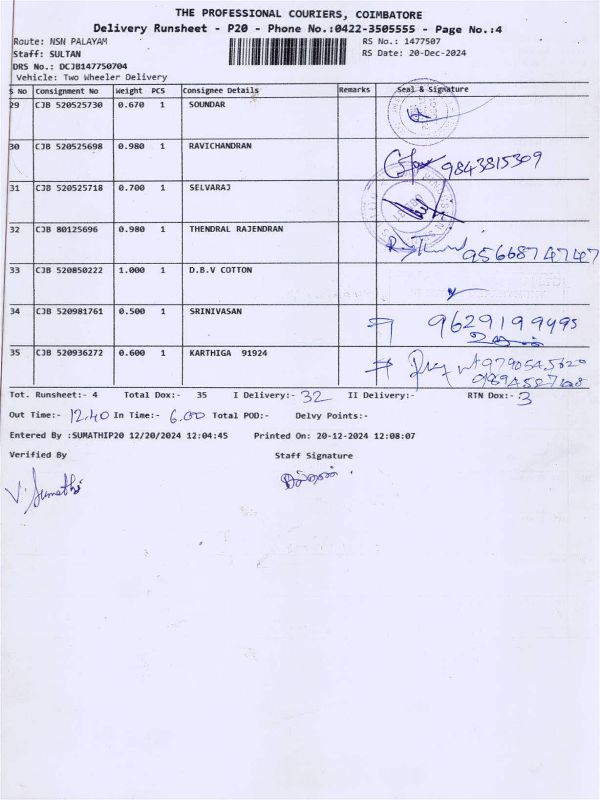 THE PROFESSIONAL COURIERS, COIMBATORE
Delivery Runsheet - P20 - Phone No.:0422-3505555 - Page No.:4
Route: NSN PALAYAM RS No.: 1477507
Staff: SULTAN RS Date: 20-Dec-2024
DRS No.: DCJB147750704
Vehicle: Two Wheeler Delivery
S No Consignment No Weight PCS Consignee Details Remarks Seal & Signature
29 CJB 520525730 0.670 1 SOUNDAR
30 CJB 520525698 0.980 1 RAVICHANDRAN
9843815309
31 CJB 520525718 0.700 1 SELVARAJ
32 CJB 80125696 0.980 1 THENDRAL RAJENDRAN
9566874747
33 CJB 520850222 1.000 1 D.B.V COTTON
34 CJB 520981761 0.500 1 SRINIVASAN
9629199495
35 CJB 520936272 0.600 1 KARTHIGA 91924
Tot. Runsheet:- 4 Total Dox:- 35 I Delivery:- 32 II Delivery:- RTN Dox:- 3
Out Time:- 12.40 In Time:- 6.00 Total POD:- Delvy Points:-
Entered By :SUMATHIP20 12/20/2024 12:04:45 Printed On: 20-12-2024 12:08:07
Verified By Staff Signature
V. Sumathi